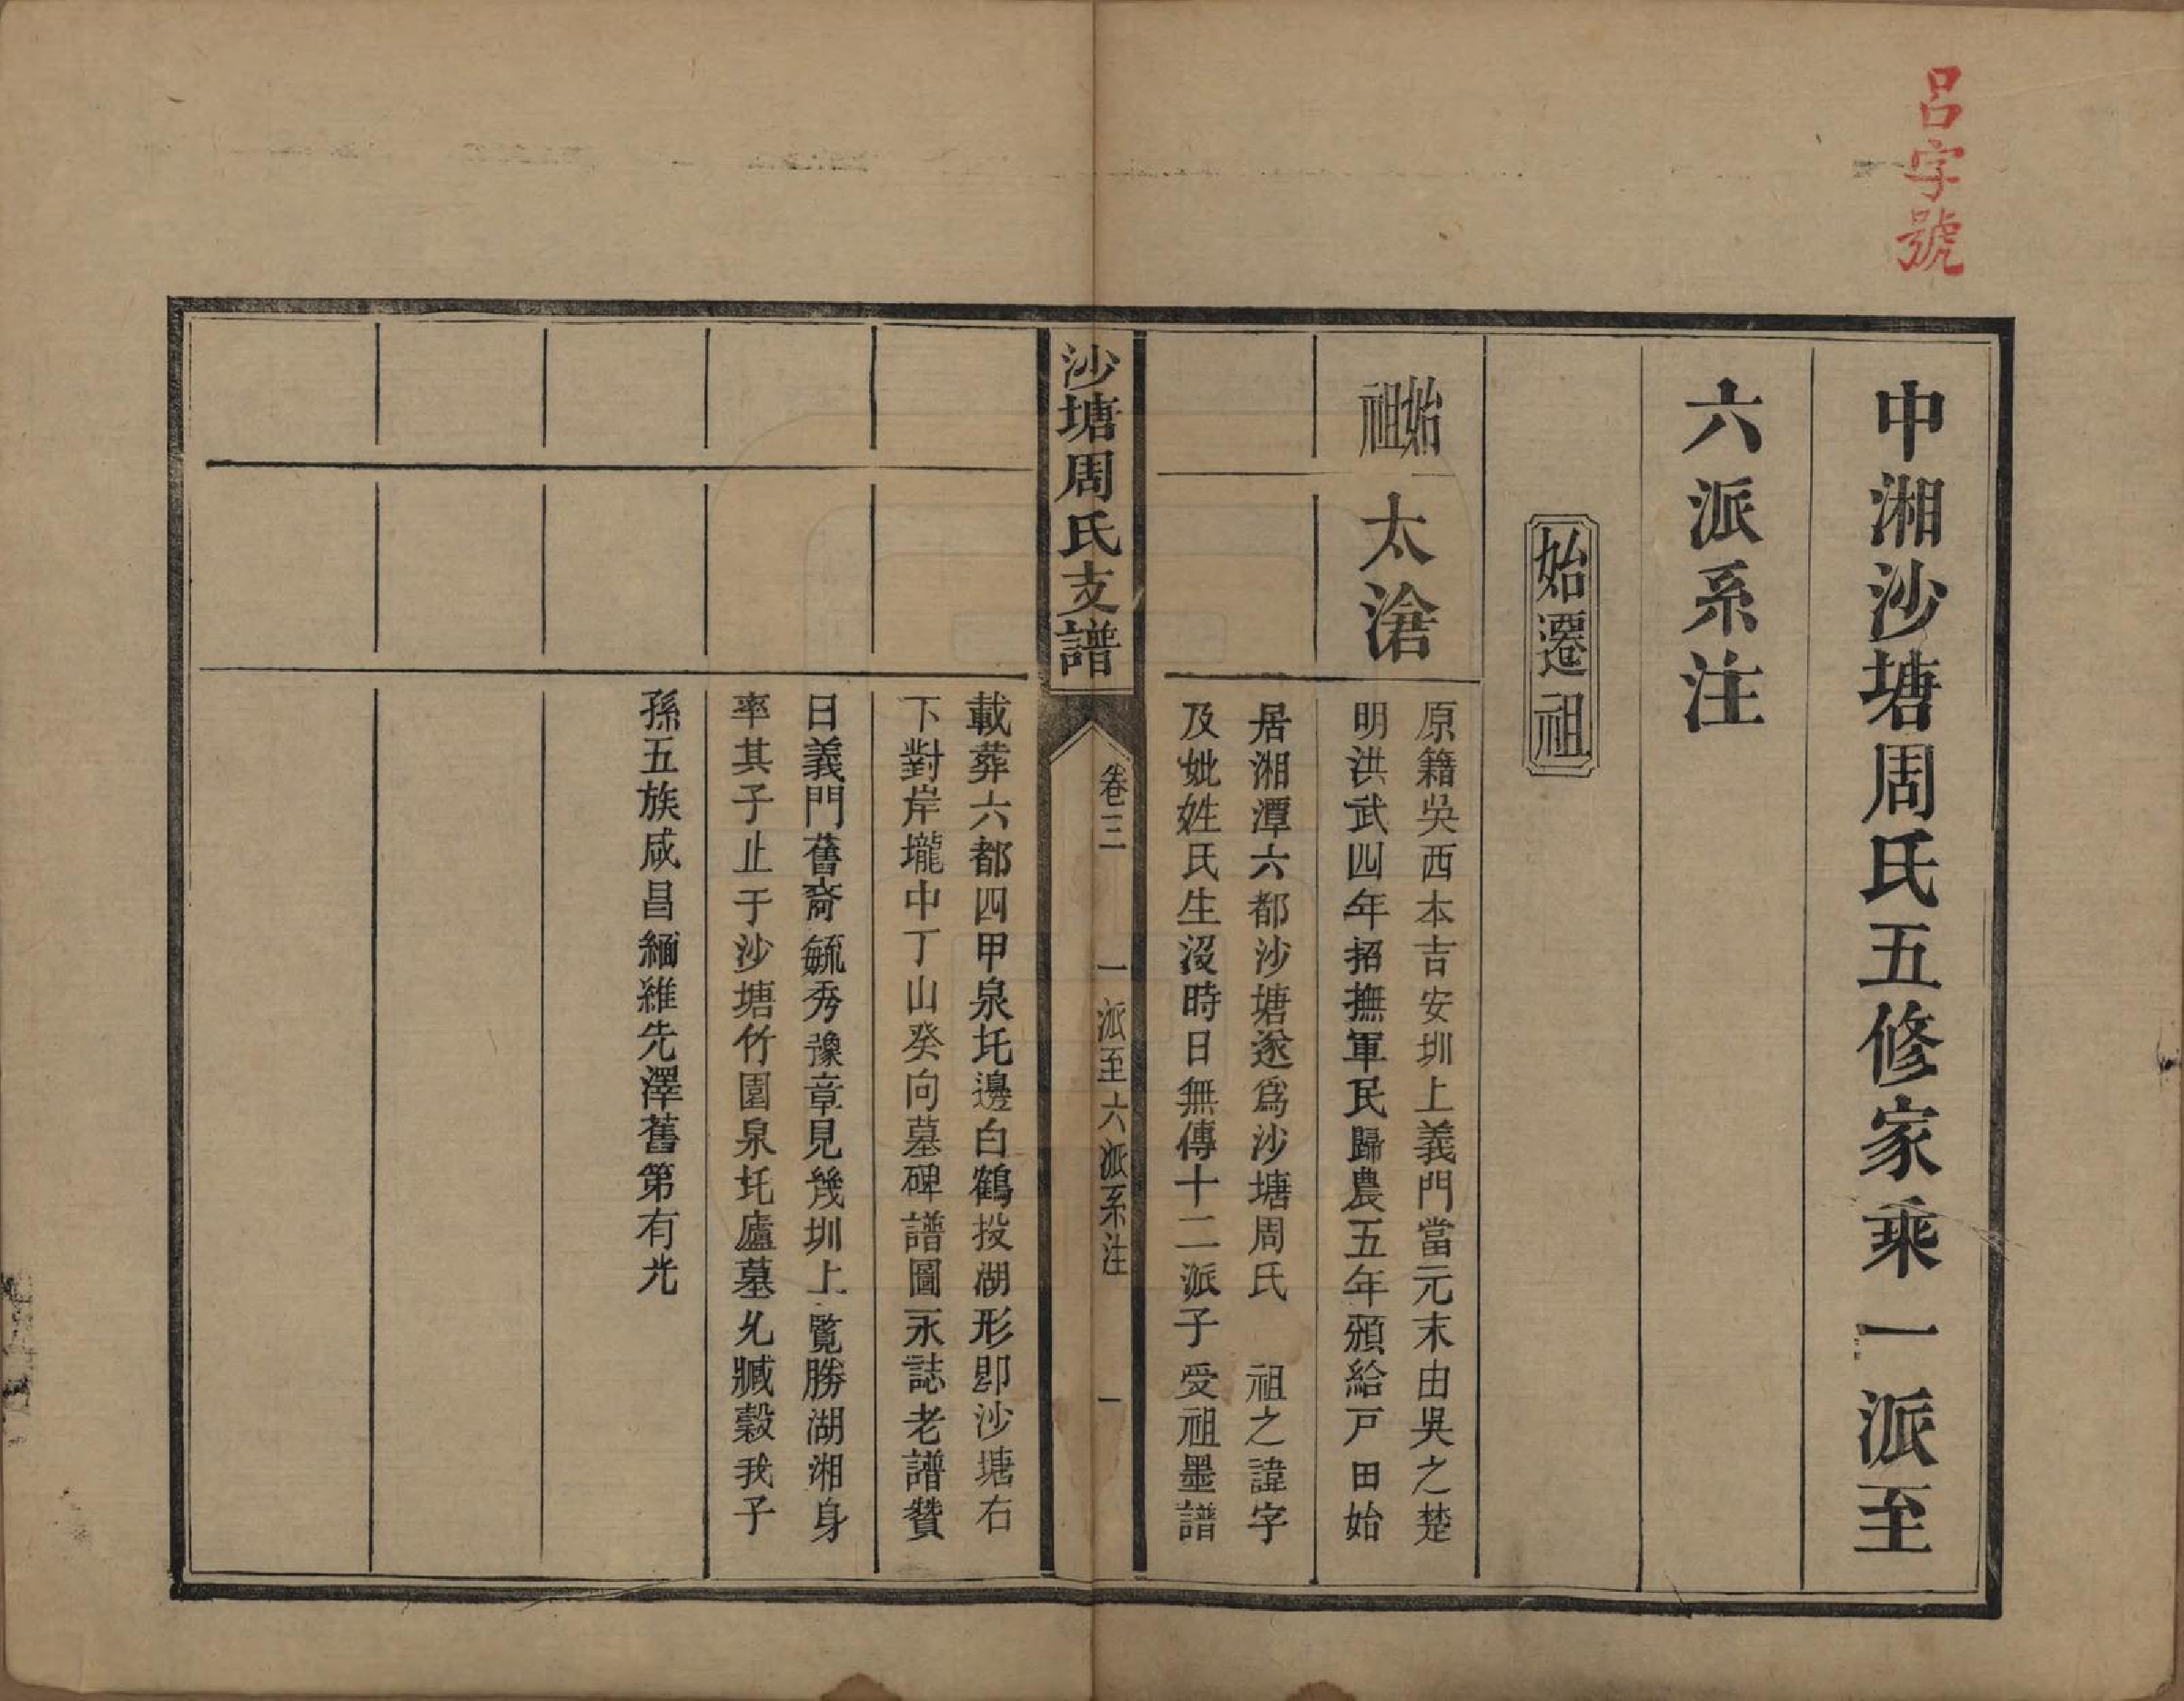 呂字號
中湘沙塘周氏五修家乘一派至
六派系注
始遷祖
始祖
太滄
原籍吳西本吉安圳上義門當元末由吳之楚
明洪武四年招撫軍民歸農五年頒給戸田始
居湘潭六都沙塘遂爲沙塘周氏　祖之諱字
及妣姓氏生沒時日無傳十二派子受祖墨譜
沙塘周氏支譜
卷三
一派至六派系注
一
載葬六都四甲泉圫邊白鶴投湖形即沙塘右
下對岸壠中丁山癸向墓碑譜圖永誌老譜贊
曰義門舊裔毓秀豫章見幾圳上覽勝湖湘身
率其子止于沙塘竹園泉圫廬墓允臧穀我子
孫五族咸昌緬維先澤舊第有光